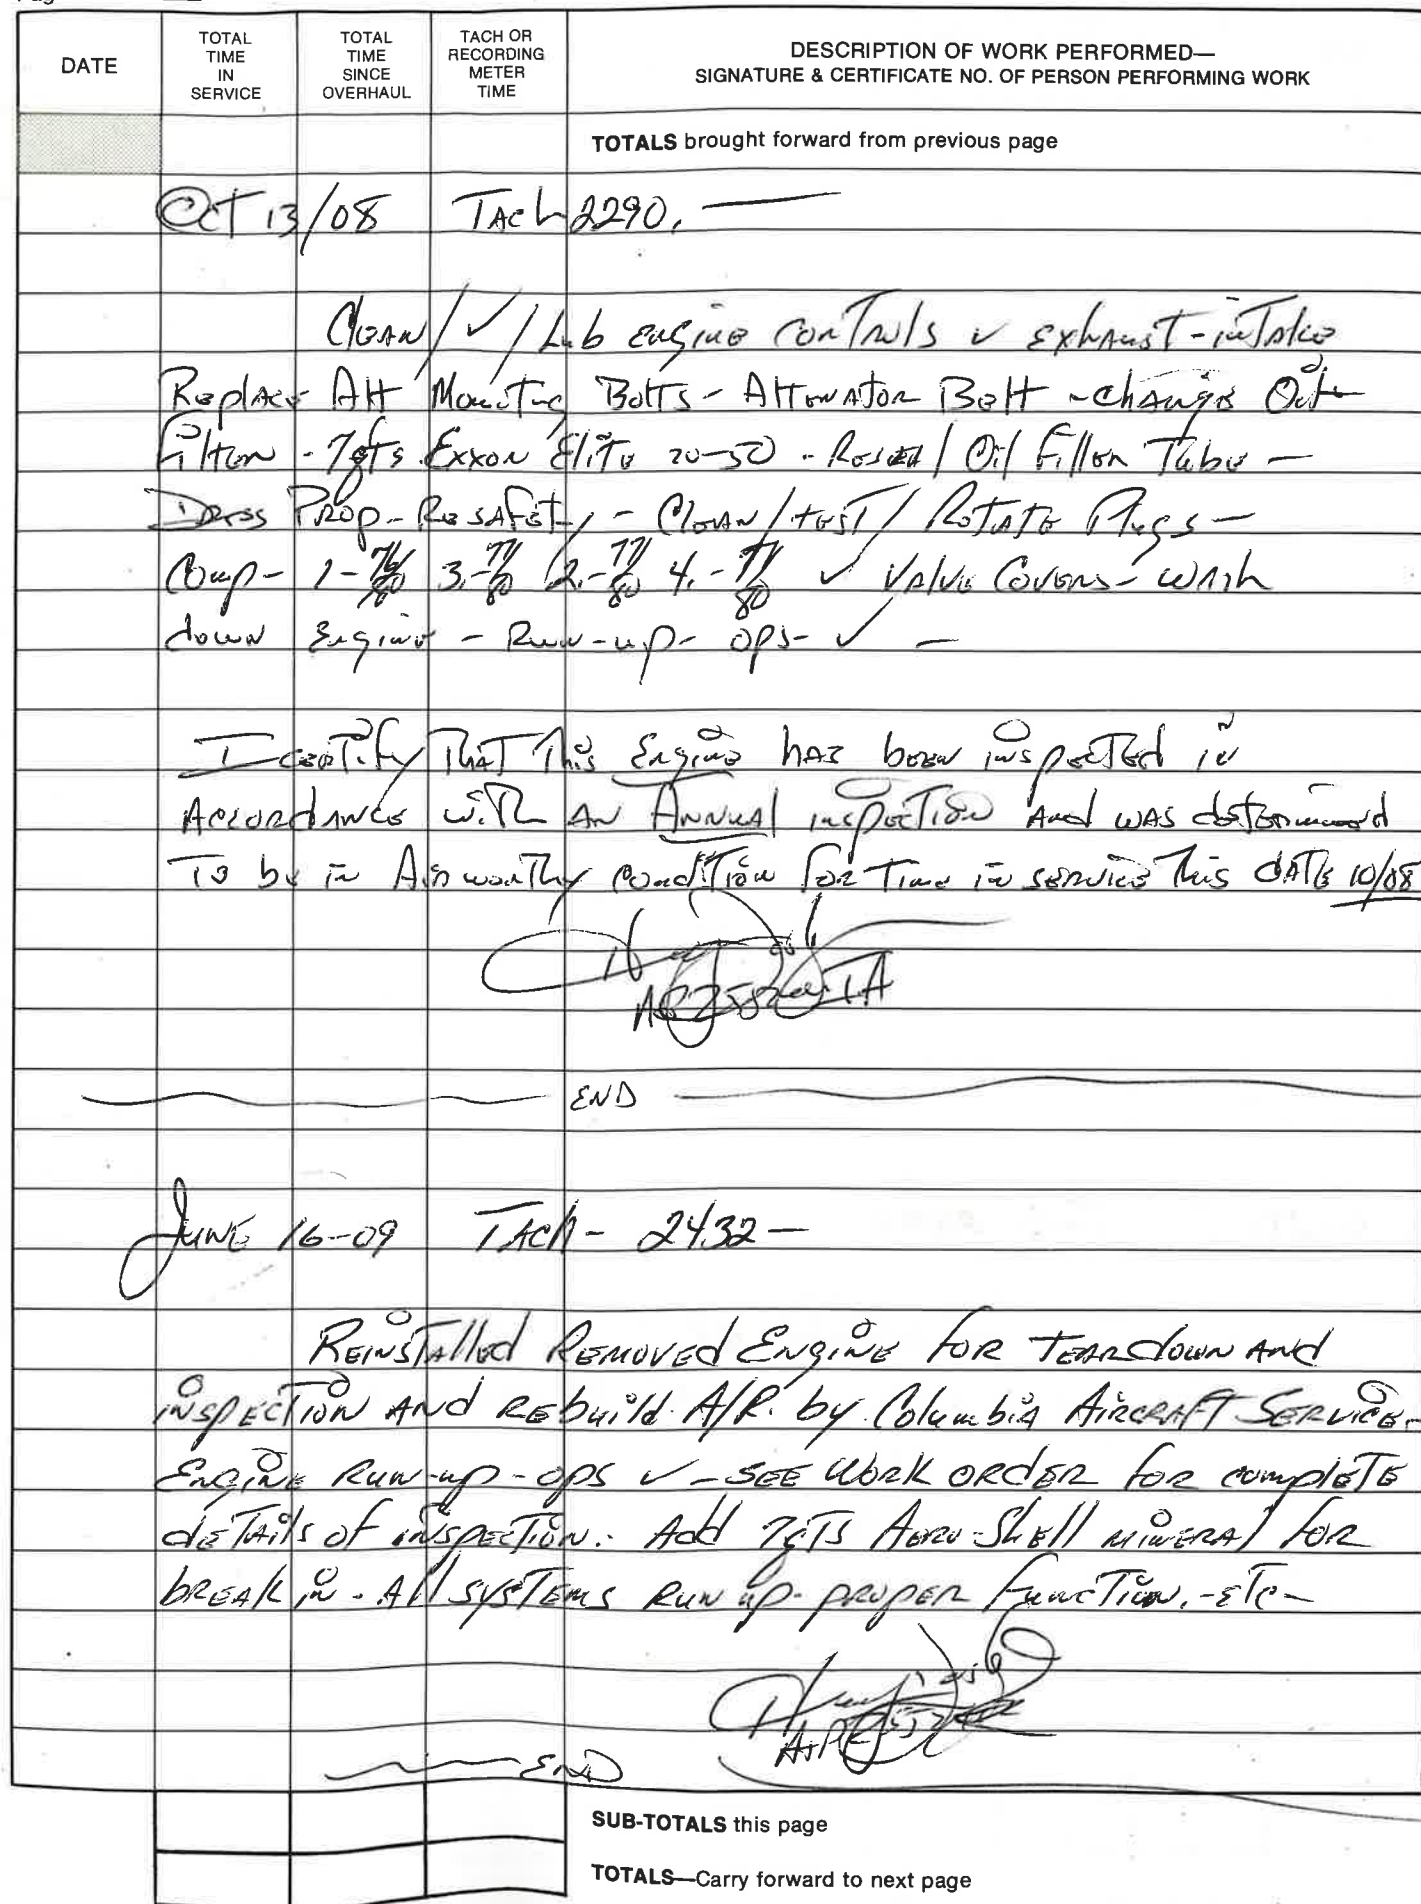 DATE
TOTAL TIME IN SERVICE
TOTAL TIME SINCE OVERHAUL
TACH OR RECORDING METER TIME
DESCRIPTION OF WORK PERFORMED—
SIGNATURE & CERTIFICATE NO. OF PERSON PERFORMING WORK
TOTALS brought forward from previous page
OCT 13/08 TACh 2290. —
Clean/✓/Lub engine controls ✓ exhaust-intake
Replace Alt Mounting Bolts - Alternator Belt - change Oil
Filter - 7qts Exxon Elite 20-50 - Reseal Oil Filler Tube —
Dress Prop - Resafety - Clean/test/Rotate Plugs —
Comp- 1-76/80 3.-77/80 2.-77/80 4.-77/80 ✓ Valve Covers - wash
down Engine - Run-up - ops - ✓ —
I certify That This Engine has been inspected in
Accordance with an Annual inspection and was determined
To be in Airworthy condition for Time in service This date 10/08
IA
END
JUNE 16-09 TACh - 2432 —
Reinstalled Removed Engine for teardown and
inspection and rebuild A/R. by Columbia Aircraft Service-
Engine Run-up - ops ✓ - SEE Work order for complete
details of inspection. Add 7qts Aero Shell mineral for
break in - All systems Run up - proper function. - etc -
END
SUB-TOTALS this page
TOTALS—Carry forward to next page